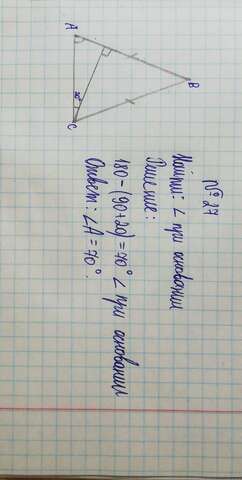 A
B
20°
C
№ 27
Найти: ∠ при основании
Решение:
180-(90+20)=70° ∠ при основании
Ответ: ∠A=70°.